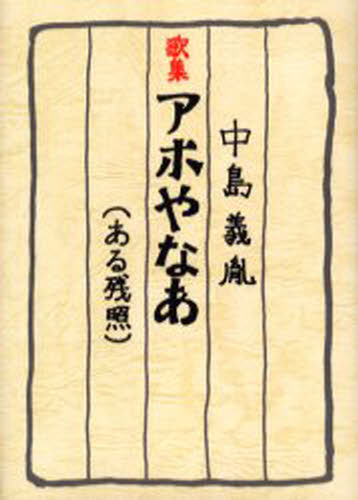 中島義胤
歌集
アホやなあ
(ある残照)